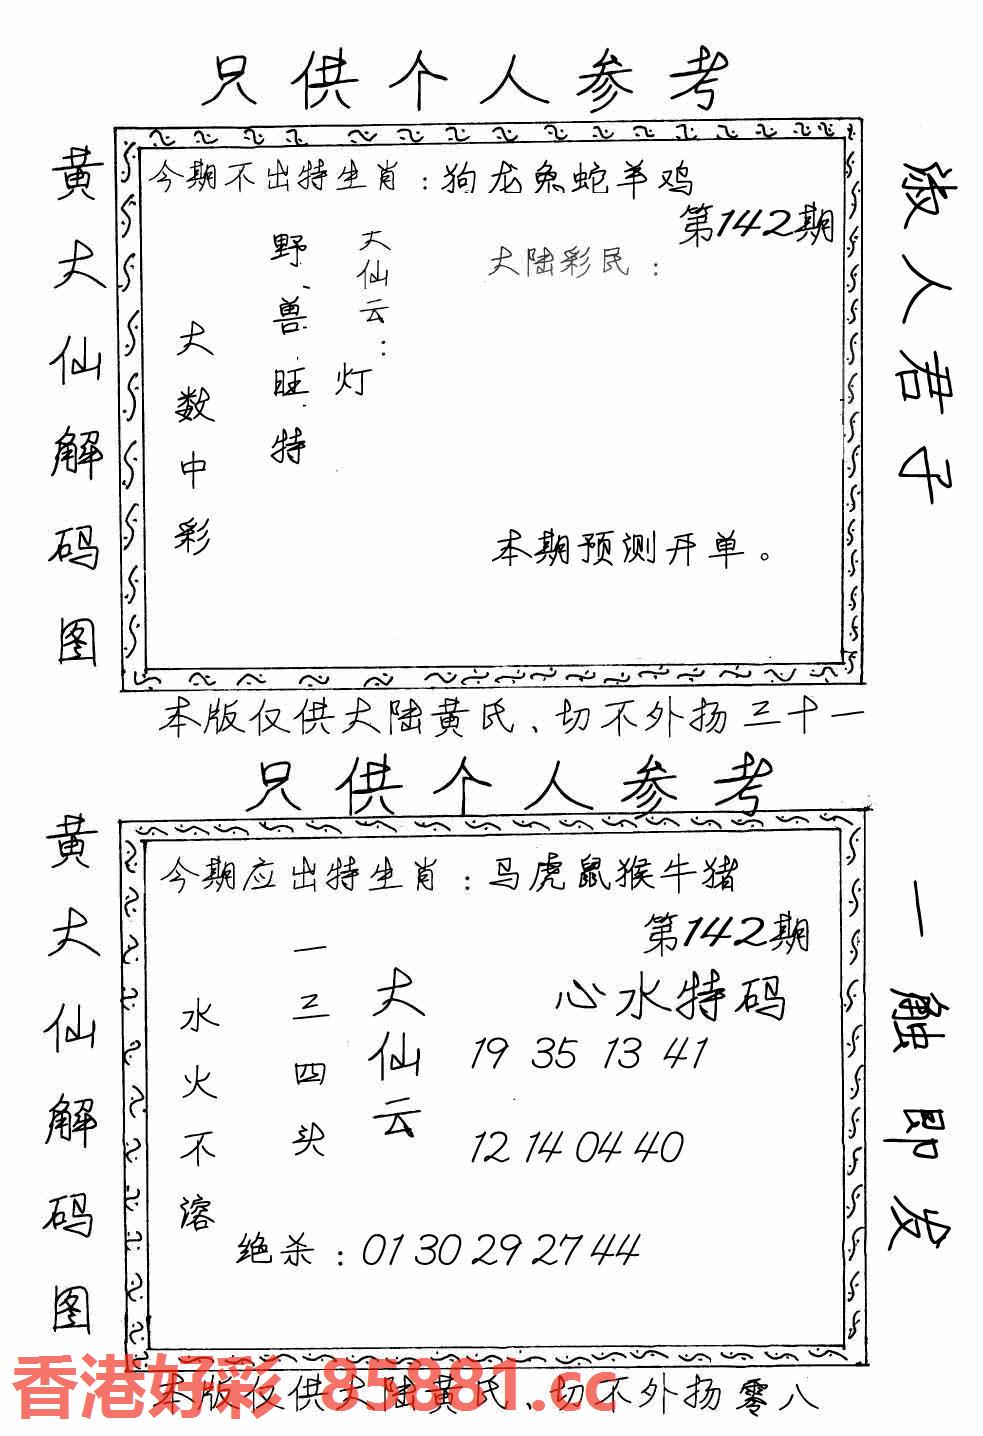 只供个人参考
黄大仙解码图
今期不出特生肖：狗龙兔蛇羊鸡
第142期
大陆彩民：
大仙云：
灯
野兽旺特
大数中彩
本期预测开单。
淑人君子
本版仅供大陆黄氏、切不外扬三十一
只供个人参考
黄大仙解码图
今期应出特生肖：马虎鼠猴牛猪
第142期
心水特码
19 35 13 41
12 14 04 40
大仙云
一三四头
水火不溶
绝杀：01 30 29 27 44
一触即发
本版仅供大陆黄氏、切不外扬零八
香港好彩 85881.cc